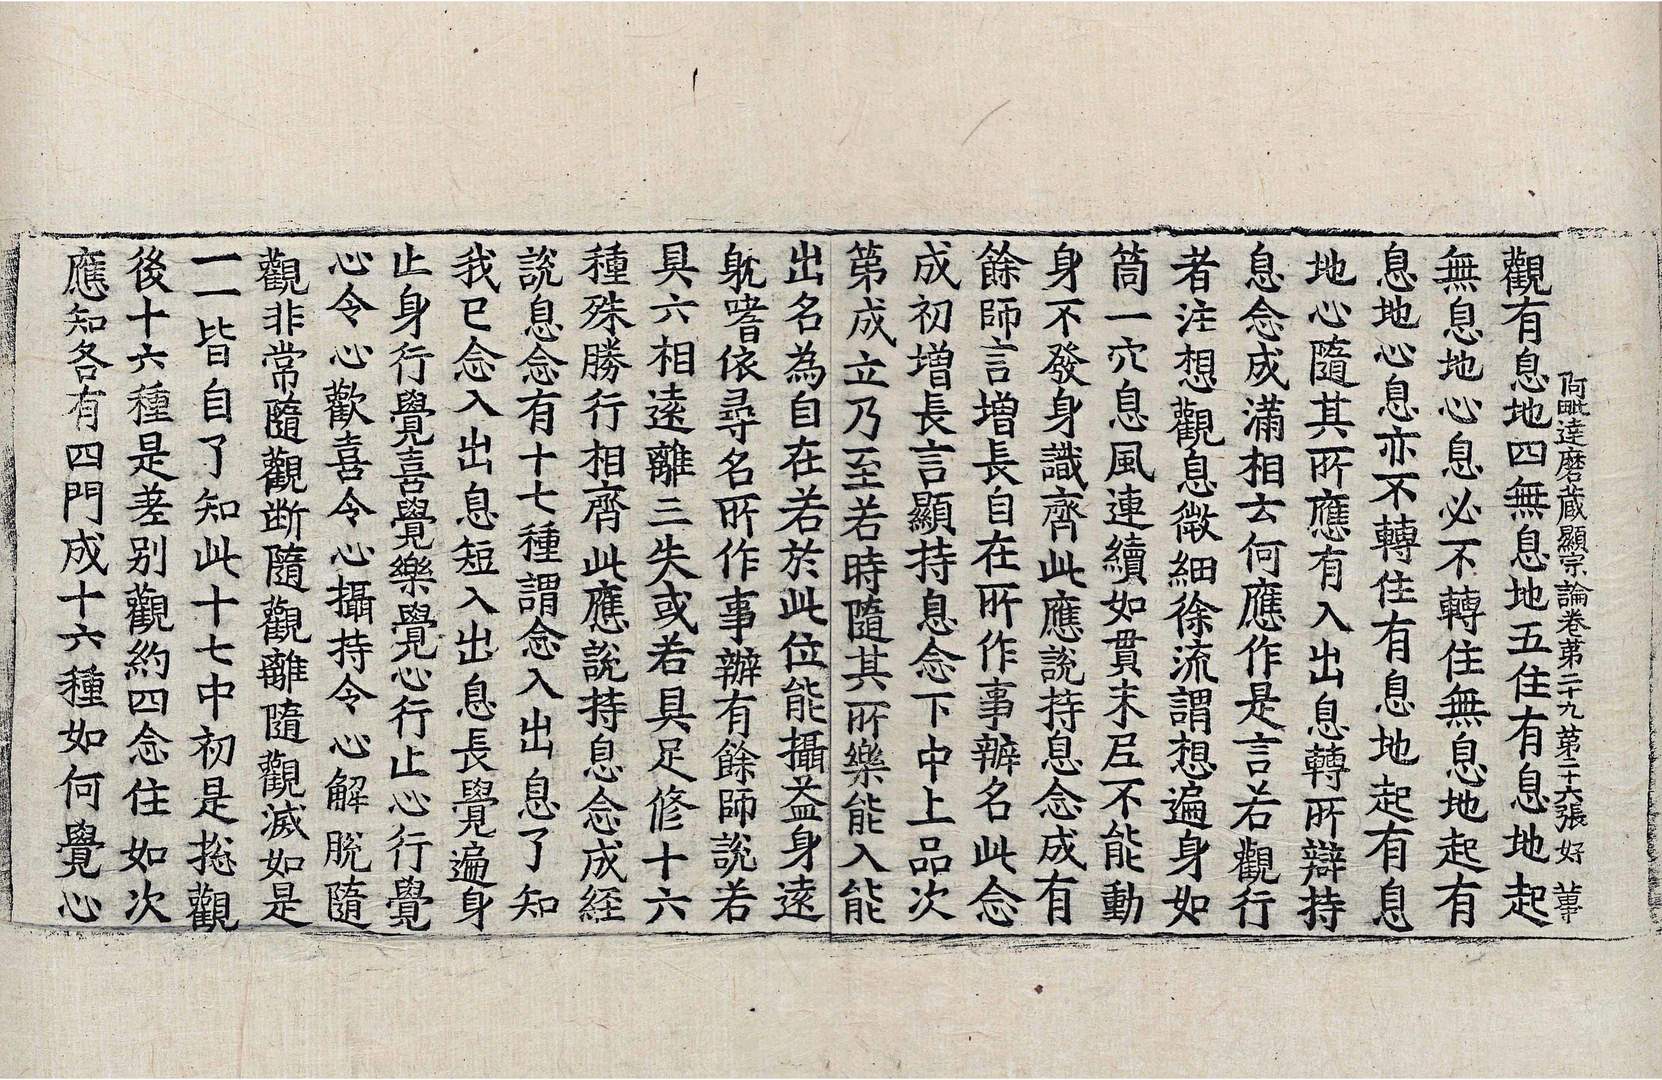 阿毗達磨藏顯宗論卷第二十九 第二十六張 好 董
觀有息地四無息地五住有息地起
無息地心息必不轉住無息地起有
息地心息亦不轉住有息地起有息
地心隨其所應有入出息轉所辯持
息念成滿相云何應作是言若觀行
者注想觀息微細徐流謂想遍身如
筒一穴息風連續如貫末尼不能動
身不發身識齊此應說持息念成有
餘師言增長自在所作事辦名此念
成初增長言顯持息念下中上品次
第成立乃至若時隨其所樂能入能
出名為自在若於此位能攝益身遠
躭嗜依尋名所作事辦有餘師說若
具六相遠離三失或若具足修十六
種殊勝行相齊此應說持息念成經
說息念有十七種謂念入出息了知
我已念入出息短入出息長覺遍身
止身行覺喜覺樂覺心行止心行覺
心令心歡喜令心攝持令心解脫隨
觀非常隨觀断隨觀離隨觀滅如是
一一皆自了知此十七中初是揔觀
後十六種是差別觀約四念住如次
應知各有四門成十六種如何覺心